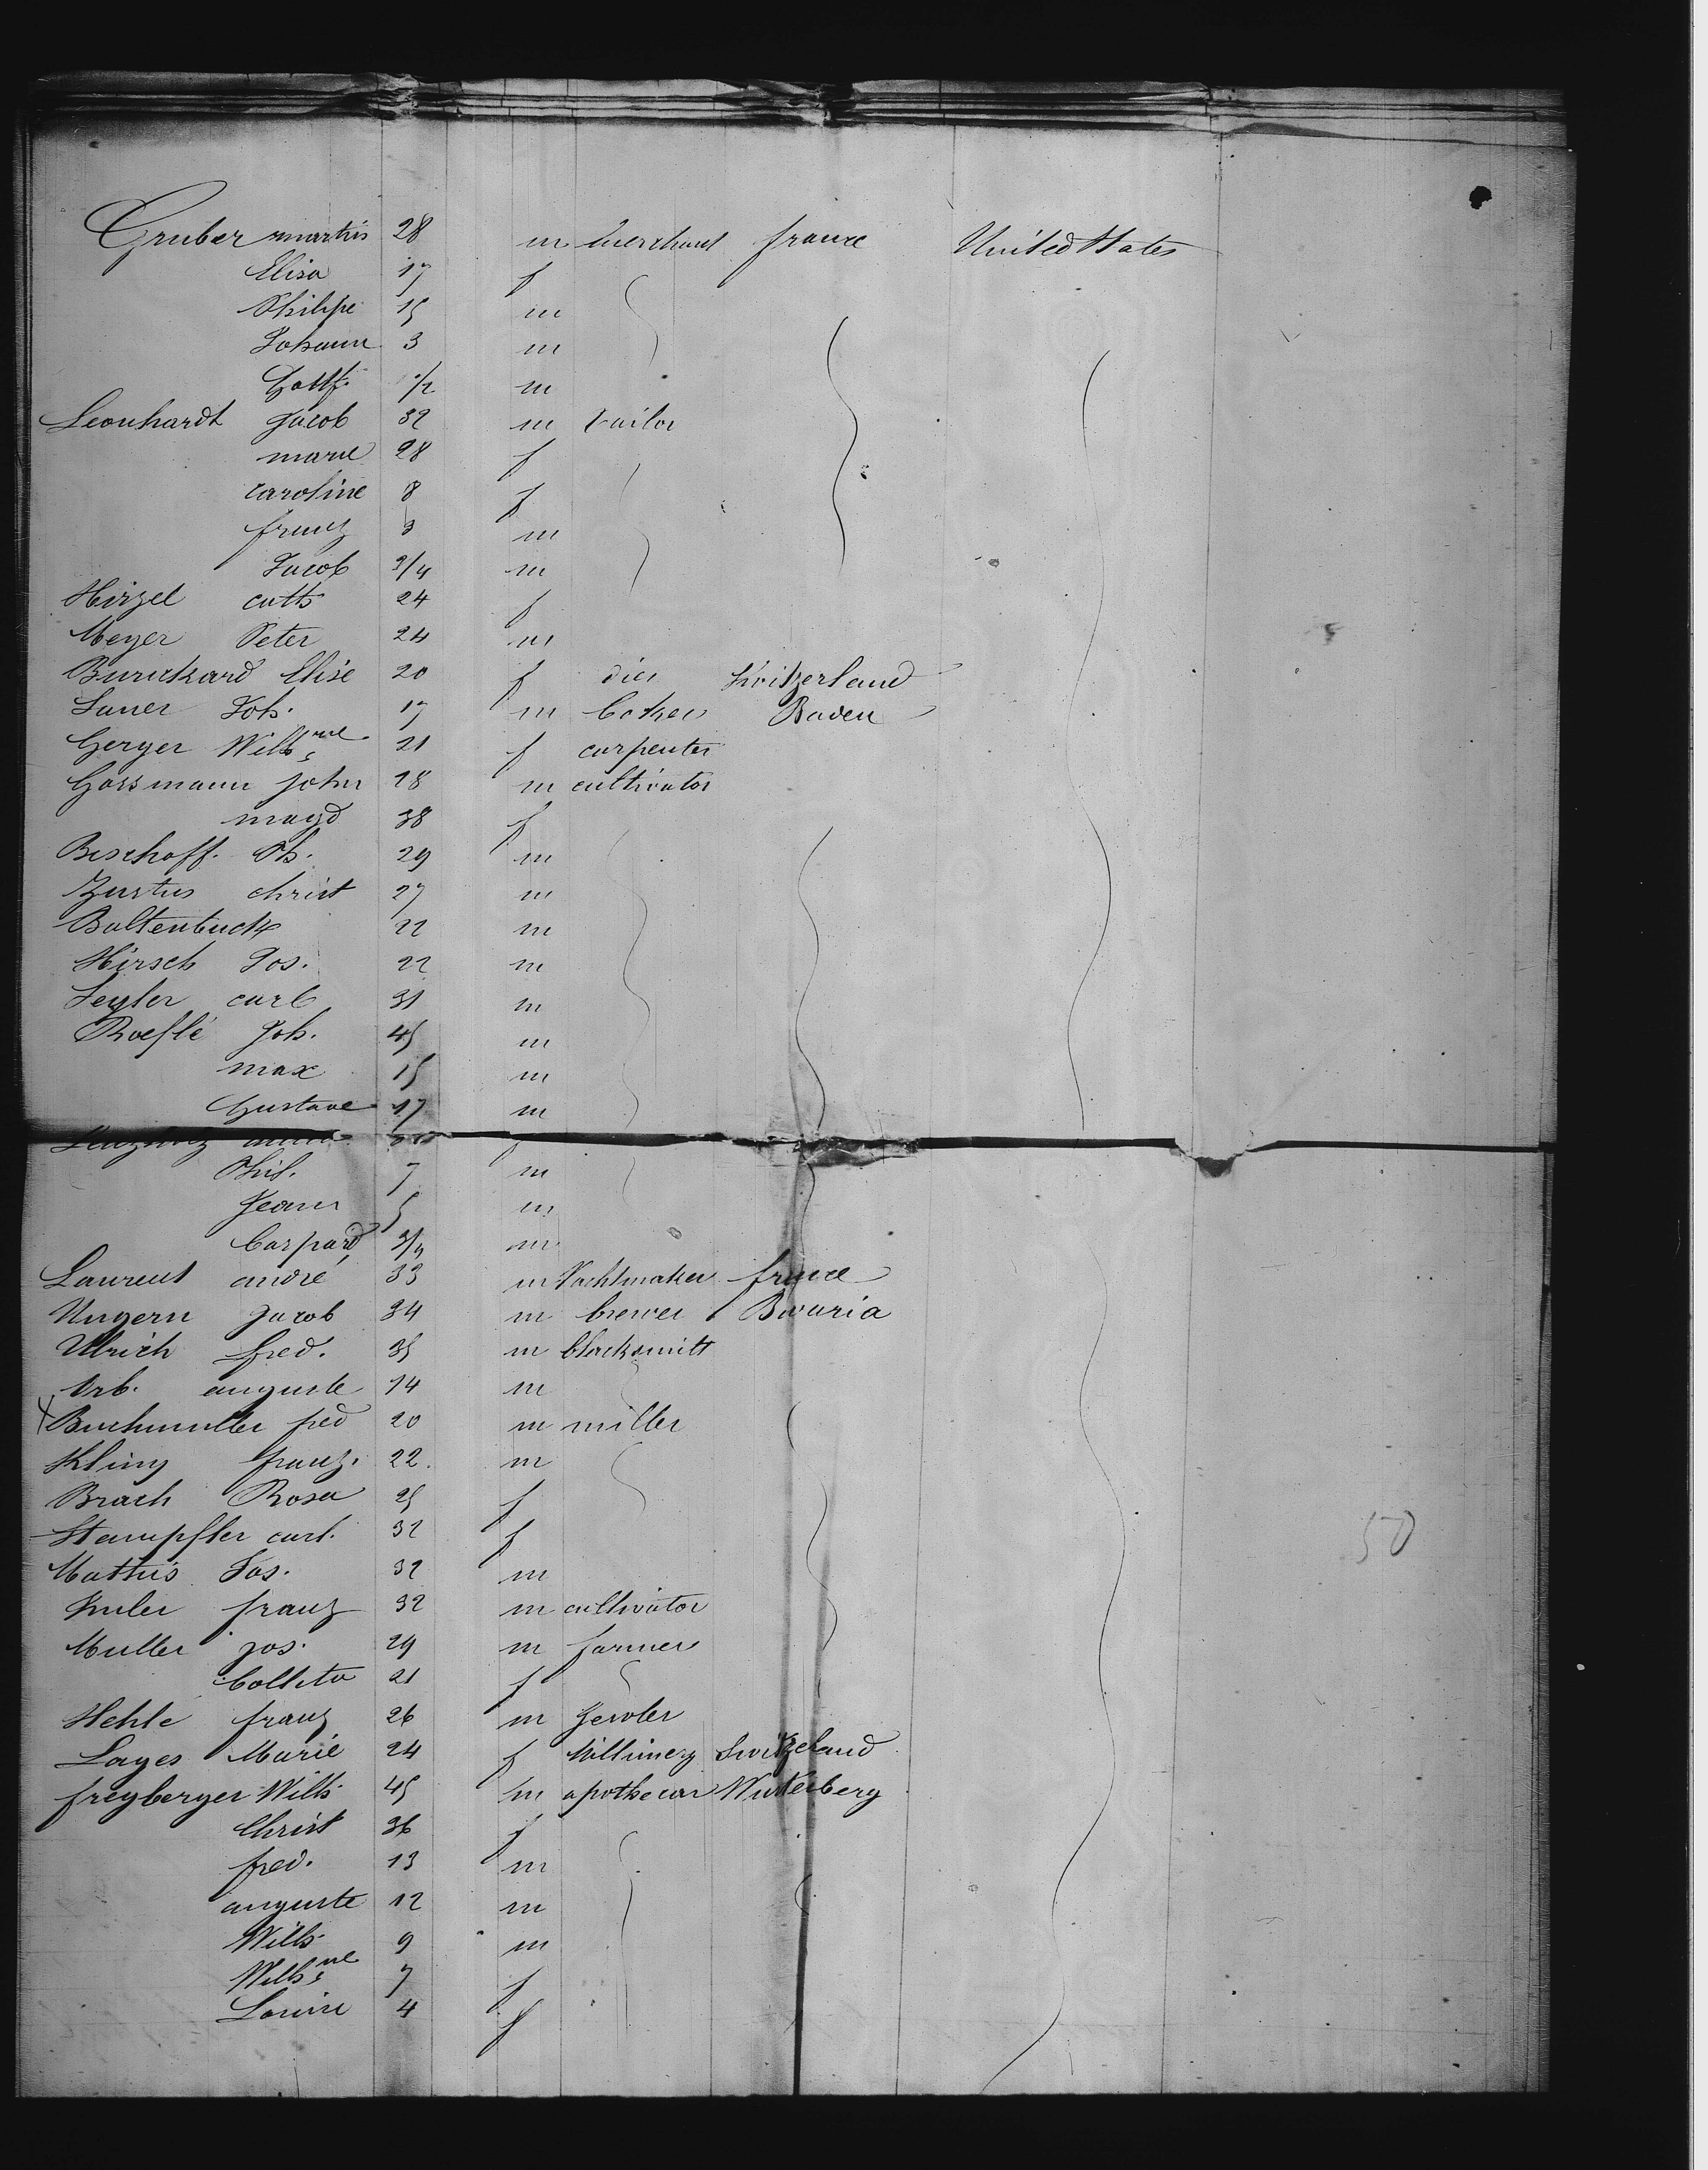 Gruber martin 28 m merchant france United States
Elisa 17 f
Philipe 15 m
Johann 3 m
Gottf. 1/2 m
Leonhardt Jacob 32 m tailor
marie 28 f
caroline 8 f
franz 3 m
Jacob 3/4 m
Hirzel cath 24 f
Meyer Peter 24 m
Burckard Elise 20 f Switzerland
Joh. 17 m baker Baden
Gerger Wilhne 21 f carpenter
Gassmann john 18 m cultivator
magd 38 f
Bischoff. Ph. 29 m
christ 27 m
Baltenbuck 22 m
Hirsch Jos. 22 m
Seyler carl 31 m
Roeflé Joh. 45 m
max 15 m
Gustave 17 m
anna f
Phil. 7 m
Jean 5 m
Caspard 3/4 m
Laurent andré 33 m france
Ungern Jacob 34 m brewer Bavaria
Ulrich fred. 35 m blacksmitt
auguste 14 m
Buchmuller fred 20 m miller
Kling franz. 22. m
Brach Rosa 25 f
Stampfler carl. 32 f
Mathis Jos. 32 m
franz 32 m cultivator
Muller jos. 29 m farmer
21 f
Hehlé franz 26 m
Layes Marie 24 f Millinery Switzeland
freyberger Wilh 45 m apothecar
Christ 36 f
fred. 13 m
auguste 12 m
Wilh 9 m
Wilhne 7 f
Louise 4 f
50